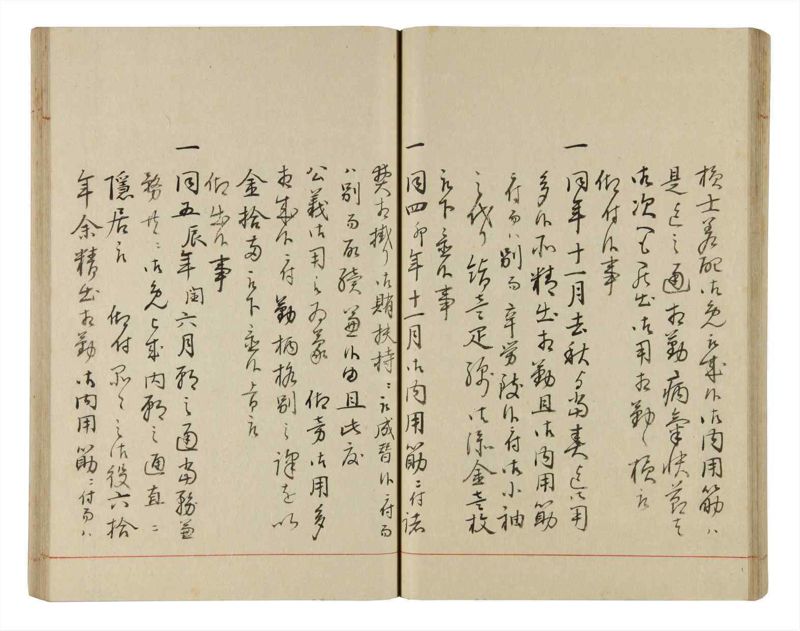 御免被成候御内用筋ハ
是迄之通相勤病気快節は
御次へ罷出御用相勤候様被
仰付候事
一同年十一月去秋ゟ当春迄御用
多候処精出相勤且御内用筋
付而ハ別而辛労致候付御小袖
之代り 壱疋 御添金壱枚
被下置候事
一同四卯年十一月御内用筋ニ付諸
費相掛り御賄扶持ニ被成替候付而
ハ別而取続兼候由且此度
公義御用之 仰 旁御用多
相成候付勤柄格別之訳を以
金拾両被下置候旨被
仰出候事
一同五辰年閏六月願之通当務並
務共ニ御免被成内願之通直ニ
隠居被 仰付 之御役六拾
年余精出相勤御内用筋ニ付而ハ